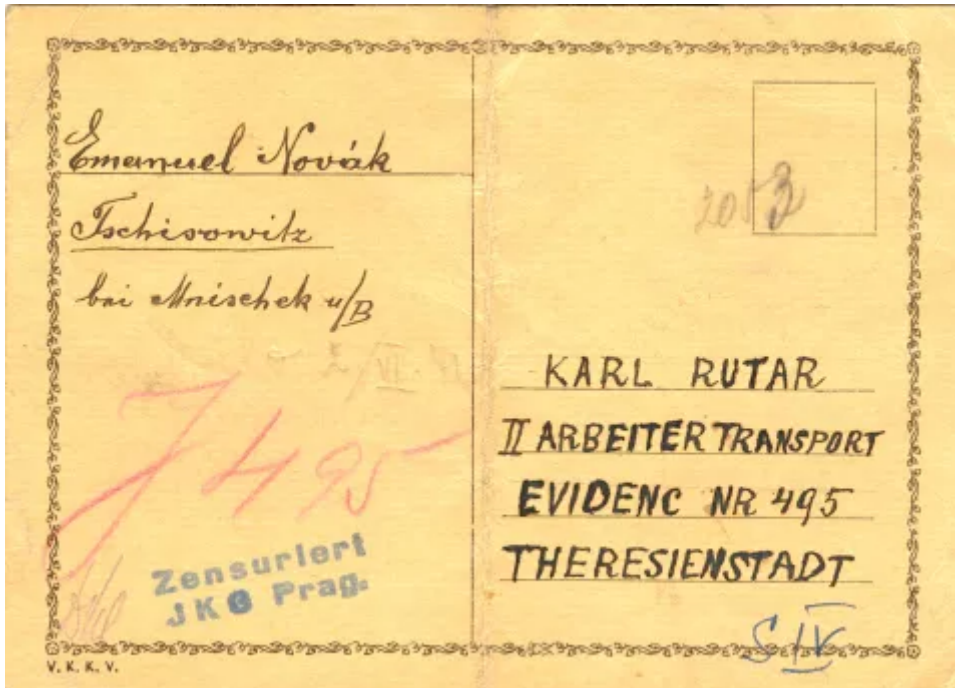 Emanuel Novák
Tschisowitz
bei Mnischek u/B
J 495
Zensuriert
JKG Prag.
V. K. K. V.
2053
KARL RUTAR
II ARBEITER TRANSPORT
EVIDENC NR 495
THERESIENSTADT
S IV